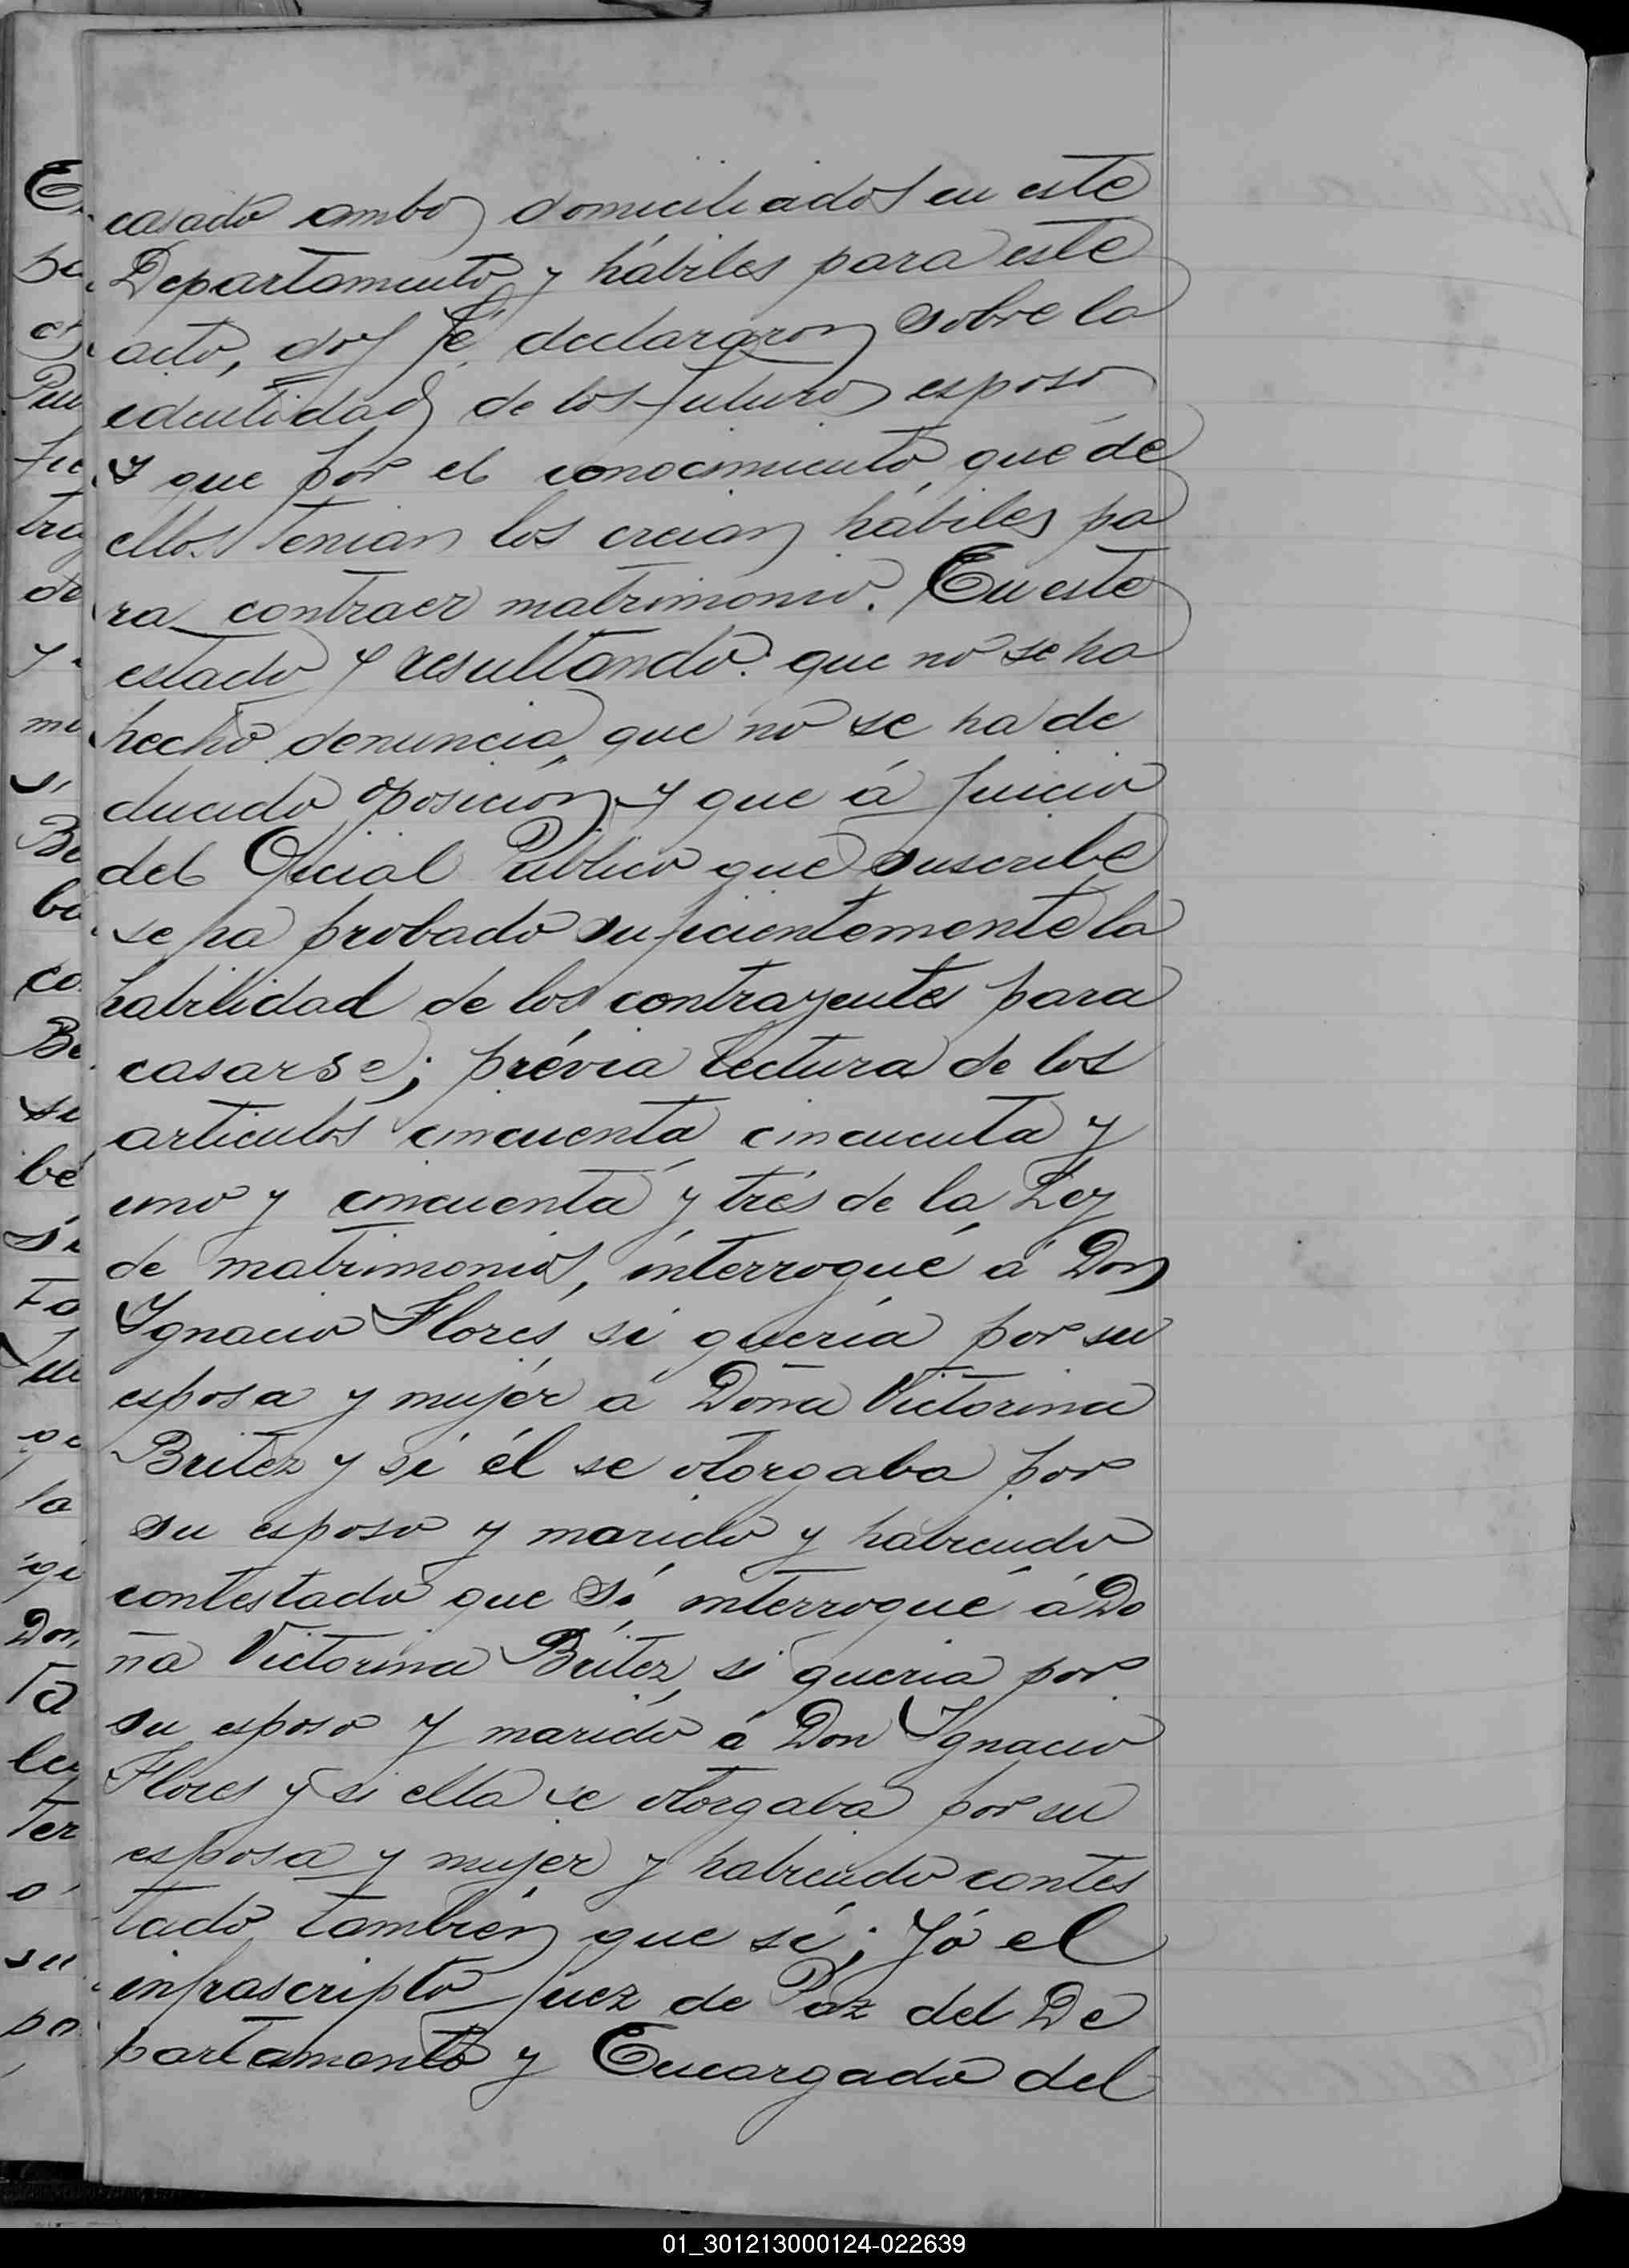 casado ambos domiciliados en este
Departamento y hábiles para este
acto, doy fé, declararon sobre la
identidad de los futuros esposos
y que por el conocimiento que de
ellos tenian los creian hábiles pa
ra contraer matrimonio. En este
estado y resultando: que no se ha
hecho denuncia, que no se ha de
ducido oposición y que á juicio
del Oficial Público que suscribe
se ha probado suficientemente la
habilidad de los contrayentes para
casarse; prévia lectura de los
articulos cincuenta cincuenta y
uno y cincuenta y trés de la Ley
de matrimonios, interrogué á Don
Ygnacio Flores si quería por su
esposa y mujér á Doña Victorina
Britez y si él se otorgaba por
su esposo y marido y habiendo
contestado que sí, interrogué á Do
ña Victorina Britez si queria por
su esposo y marido á Don Ygnacio
Flores y si ella se otorgaba por su
esposa y mujer y habiendo contes
tado también que sí; Yó el
infrascripto Juez de Paz del De
partamento y Encargado del
01_301213000124-022639